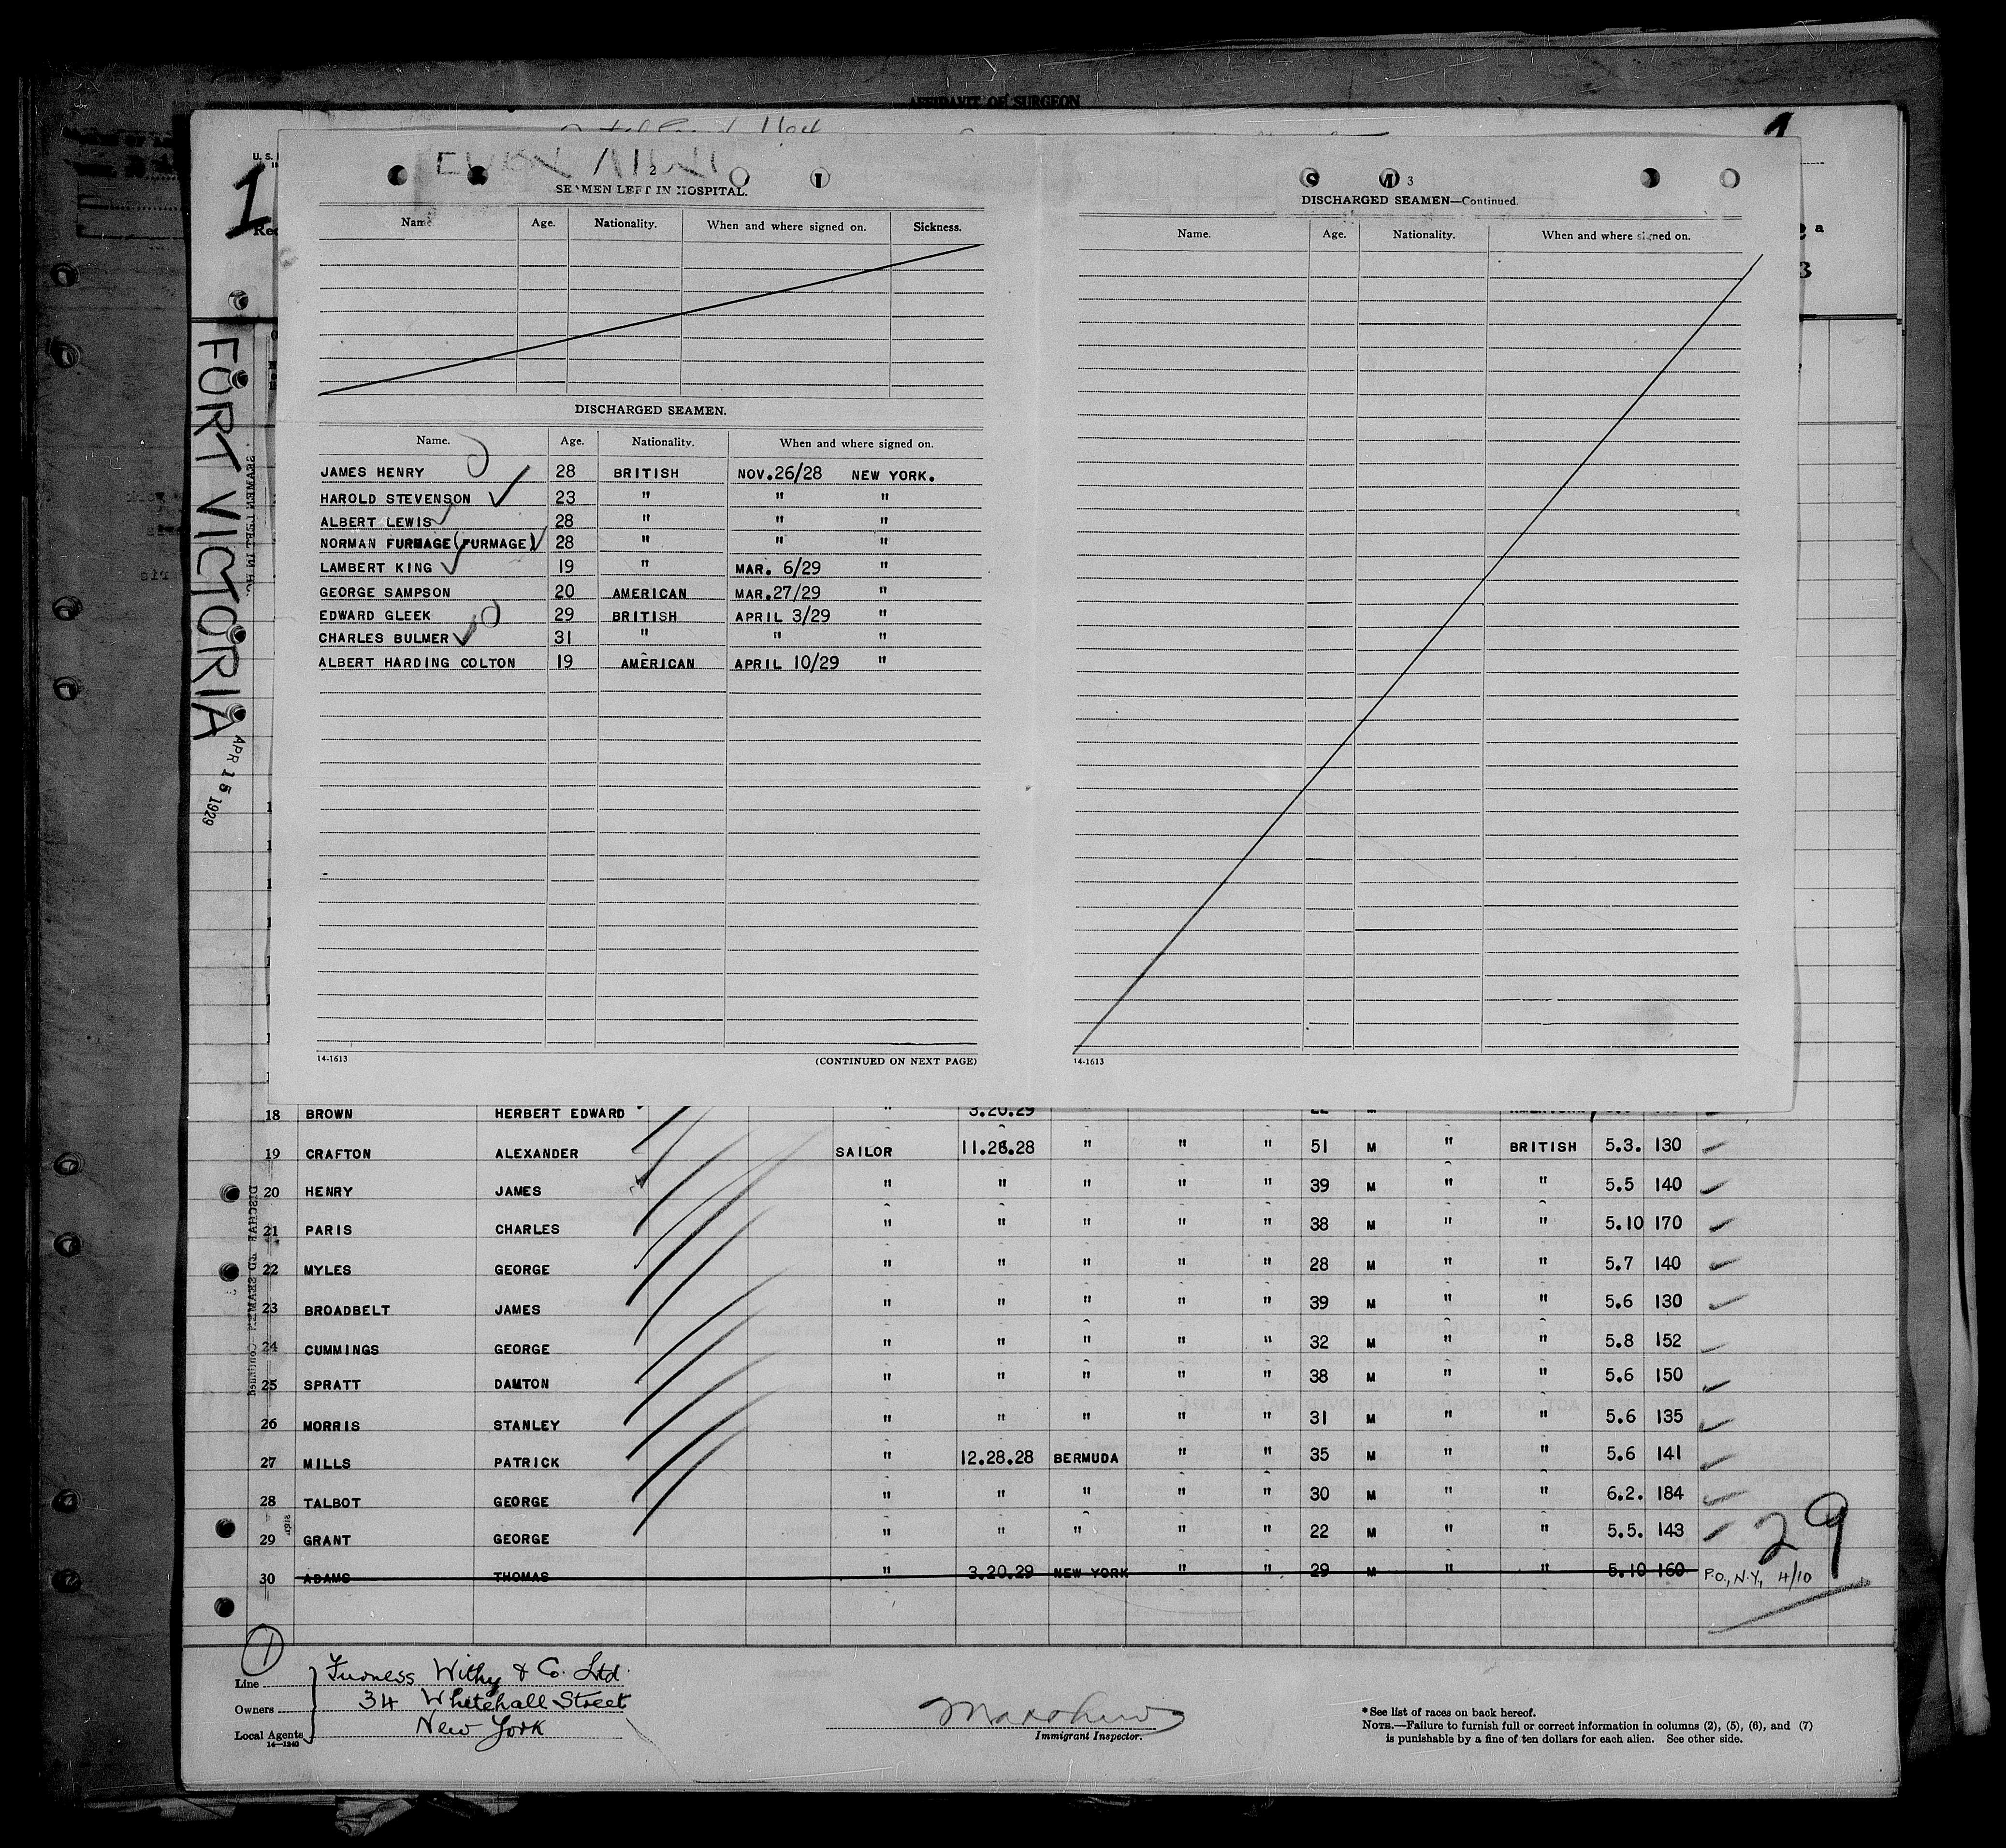 AFFIDAVIT OF SURGEON
U. S.
1
FORT VICTORIA
APR 15 1929
2
SEAMEN LEFT IN HOSPITAL.
Name. Age. Nationality. When and where signed on. Sickness.
DISCHARGED SEAMEN.
Name. Age. Nationality. When and where signed on.
JAMES HENRY 28 BRITISH NOV.26/28 NEW YORK.
HAROLD STEVENSON 23 " " "
ALBERT LEWIS 28 " " "
NORMAN FURMAGE(FURMAGE) 28 " " "
LAMBERT KING 19 " MAR. 6/29 "
GEORGE SAMPSON 20 AMERICAN MAR.27/29 "
EDWARD GLEEK 29 BRITISH APRIL 3/29 "
CHARLES BULMER 31 " " "
ALBERT HARDING COLTON 19 AMERICAN APRIL 10/29 "
14-1613 (CONTINUED ON NEXT PAGE)
3
DISCHARGED SEAMEN—Continued.
Name. Age. Nationality. When and where signed on.
14-1613
18 BROWN HERBERT EDWARD " 3.20.29
19 CRAFTON ALEXANDER SAILOR 11.26.28 " " " 51 M " BRITISH 5.3. 130
20 HENRY JAMES " " " " " 39 M " " 5.5 140
21 PARIS CHARLES " " " " " 38 M " " 5.10 170
22 MYLES GEORGE " " " " " 28 M " " 5.7 140
23 BROADBELT JAMES " " " " " 39 M " " 5.6 130
24 CUMMINGS GEORGE " " " " " 32 M " " 5.8 152
25 SPRATT DAMTON " " " " " 38 M " " 5.6 150
26 MORRIS STANLEY " " " " " 31 M " " 5.6 135
27 MILLS PATRICK " 12.28.28 BERMUDA " " 35 M " " 5.6 141
28 TALBOT GEORGE " " " " " 30 M " " 6.2. 184
29 GRANT GEORGE " " " " " 22 M " " 5.5. 143
30 ADAMS THOMAS " 3.20.29 NEW YORK " " 29 M " " 5.10 160 P.O., N.Y., 4/10
29
1
Line Furness Withy & Co. Ltd.
Owners 34 Whitehall Street
Local Agents New York
14—1240
Immigrant Inspector.
*See list of races on back hereof.
NOTE.—Failure to furnish full or correct information in columns (2), (5), (6), and (7)
is punishable by a fine of ten dollars for each alien. See other side.